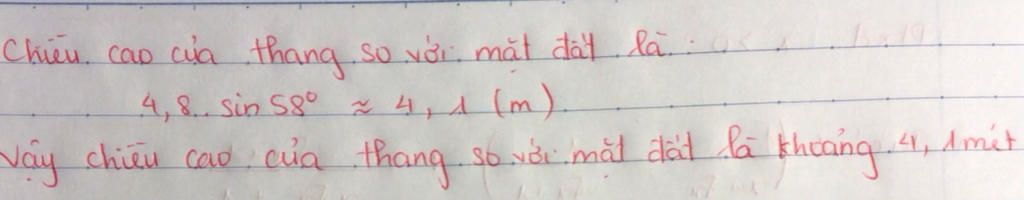 Chiều cao của thang so với mặt đất là:
4,8. sin 58° ≈ 4,1 (m)
Vậy chiều cao của thang so với mặt đất là khoảng 4,1 mét